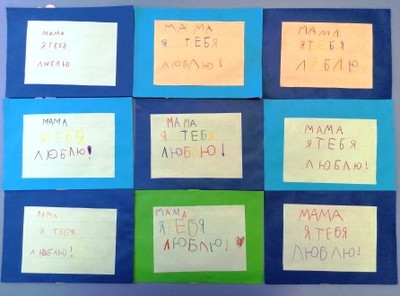 МАМА
Я ТЕБЯ
ЛЮБЛЮ
МАМА
Я ТЕБЯ
ЛЮБЛЮ!
МАМА
Я ТЕБЯ
ЛЮБЛЮ
МАМА
Я ТЕБЯ
ЛЮБЛЮ!
МАМА
Я ТЕБЯ
ЛЮБЛЮ!
МАМА
Я ТЕБЯ
ЛЮБЛЮ!
МАМА
Я ТЕБЯ
ЛЮБЛЮ!
МАМА
Я ТЕБЯ
ЛЮБЛЮ!
МАМА
Я ТЕБЯ
ЛЮБЛЮ!